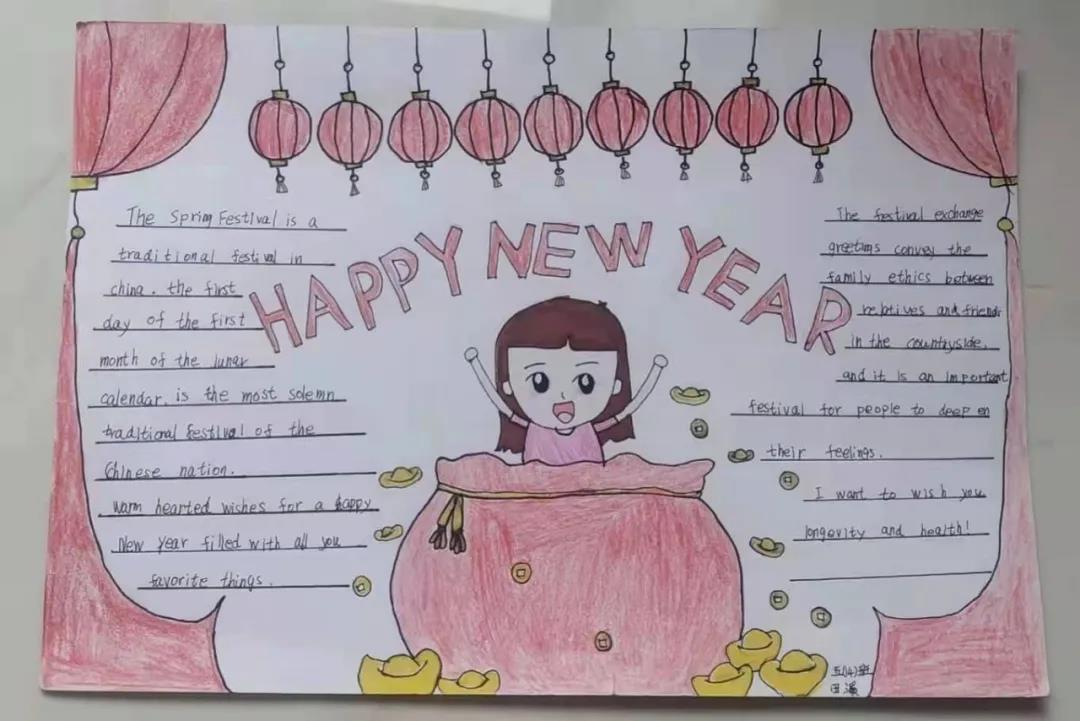 HAPPY NEW YEAR
The Spring Festival is a
traditional festival in
china. the first
day of the first
month of the lunar
calendar, is the most solemn
traditional festival of the
Chinese nation.
warm hearted wishes for a happy
New Year filled with all you
favorite things.
The festival exchange
greetings convey the
family ethics between
relatives and friends
in the countryside,
and it is an important
festival for people to deep en
their feelings.
I want to wish you
longevity and health!
五(4)班
田